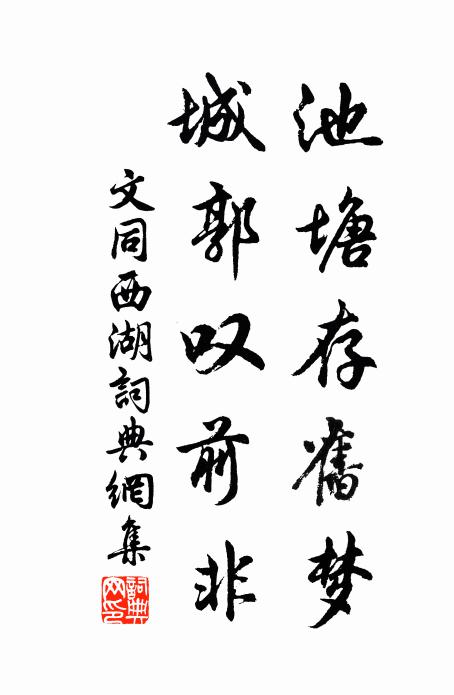 池塘存舊梦
城郭叹前非
文同西湖詞典網集
詞典網印